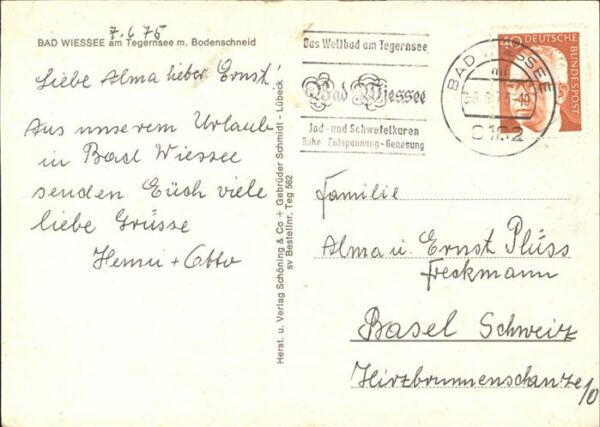 7.6.75
BAD WIESSEE am Tegernsee m. Bodenschneid
Liebe Alma lieber Ernst!
Aus unserem Urlaub
in Bad Wiessee
senden Euch viele
liebe Grüsse
Henni + Otto
Herst. u. Verlag Schöning & Co + Gebrüder Schmidt - Lübeck
sv Bestellnr. Teg 562
Das Weltbad am Tegernsee
Bad Wiessee
Jod- und Schwefelkuren
Ruhe Entspannung - Genesung
BAD WIESSEE
8182
40 DEUTSCHE BUNDESPOST
Familie
Alma u. Ernst Plüss
Freckmann
Basel Schweiz
Hirzbrunnenschanze